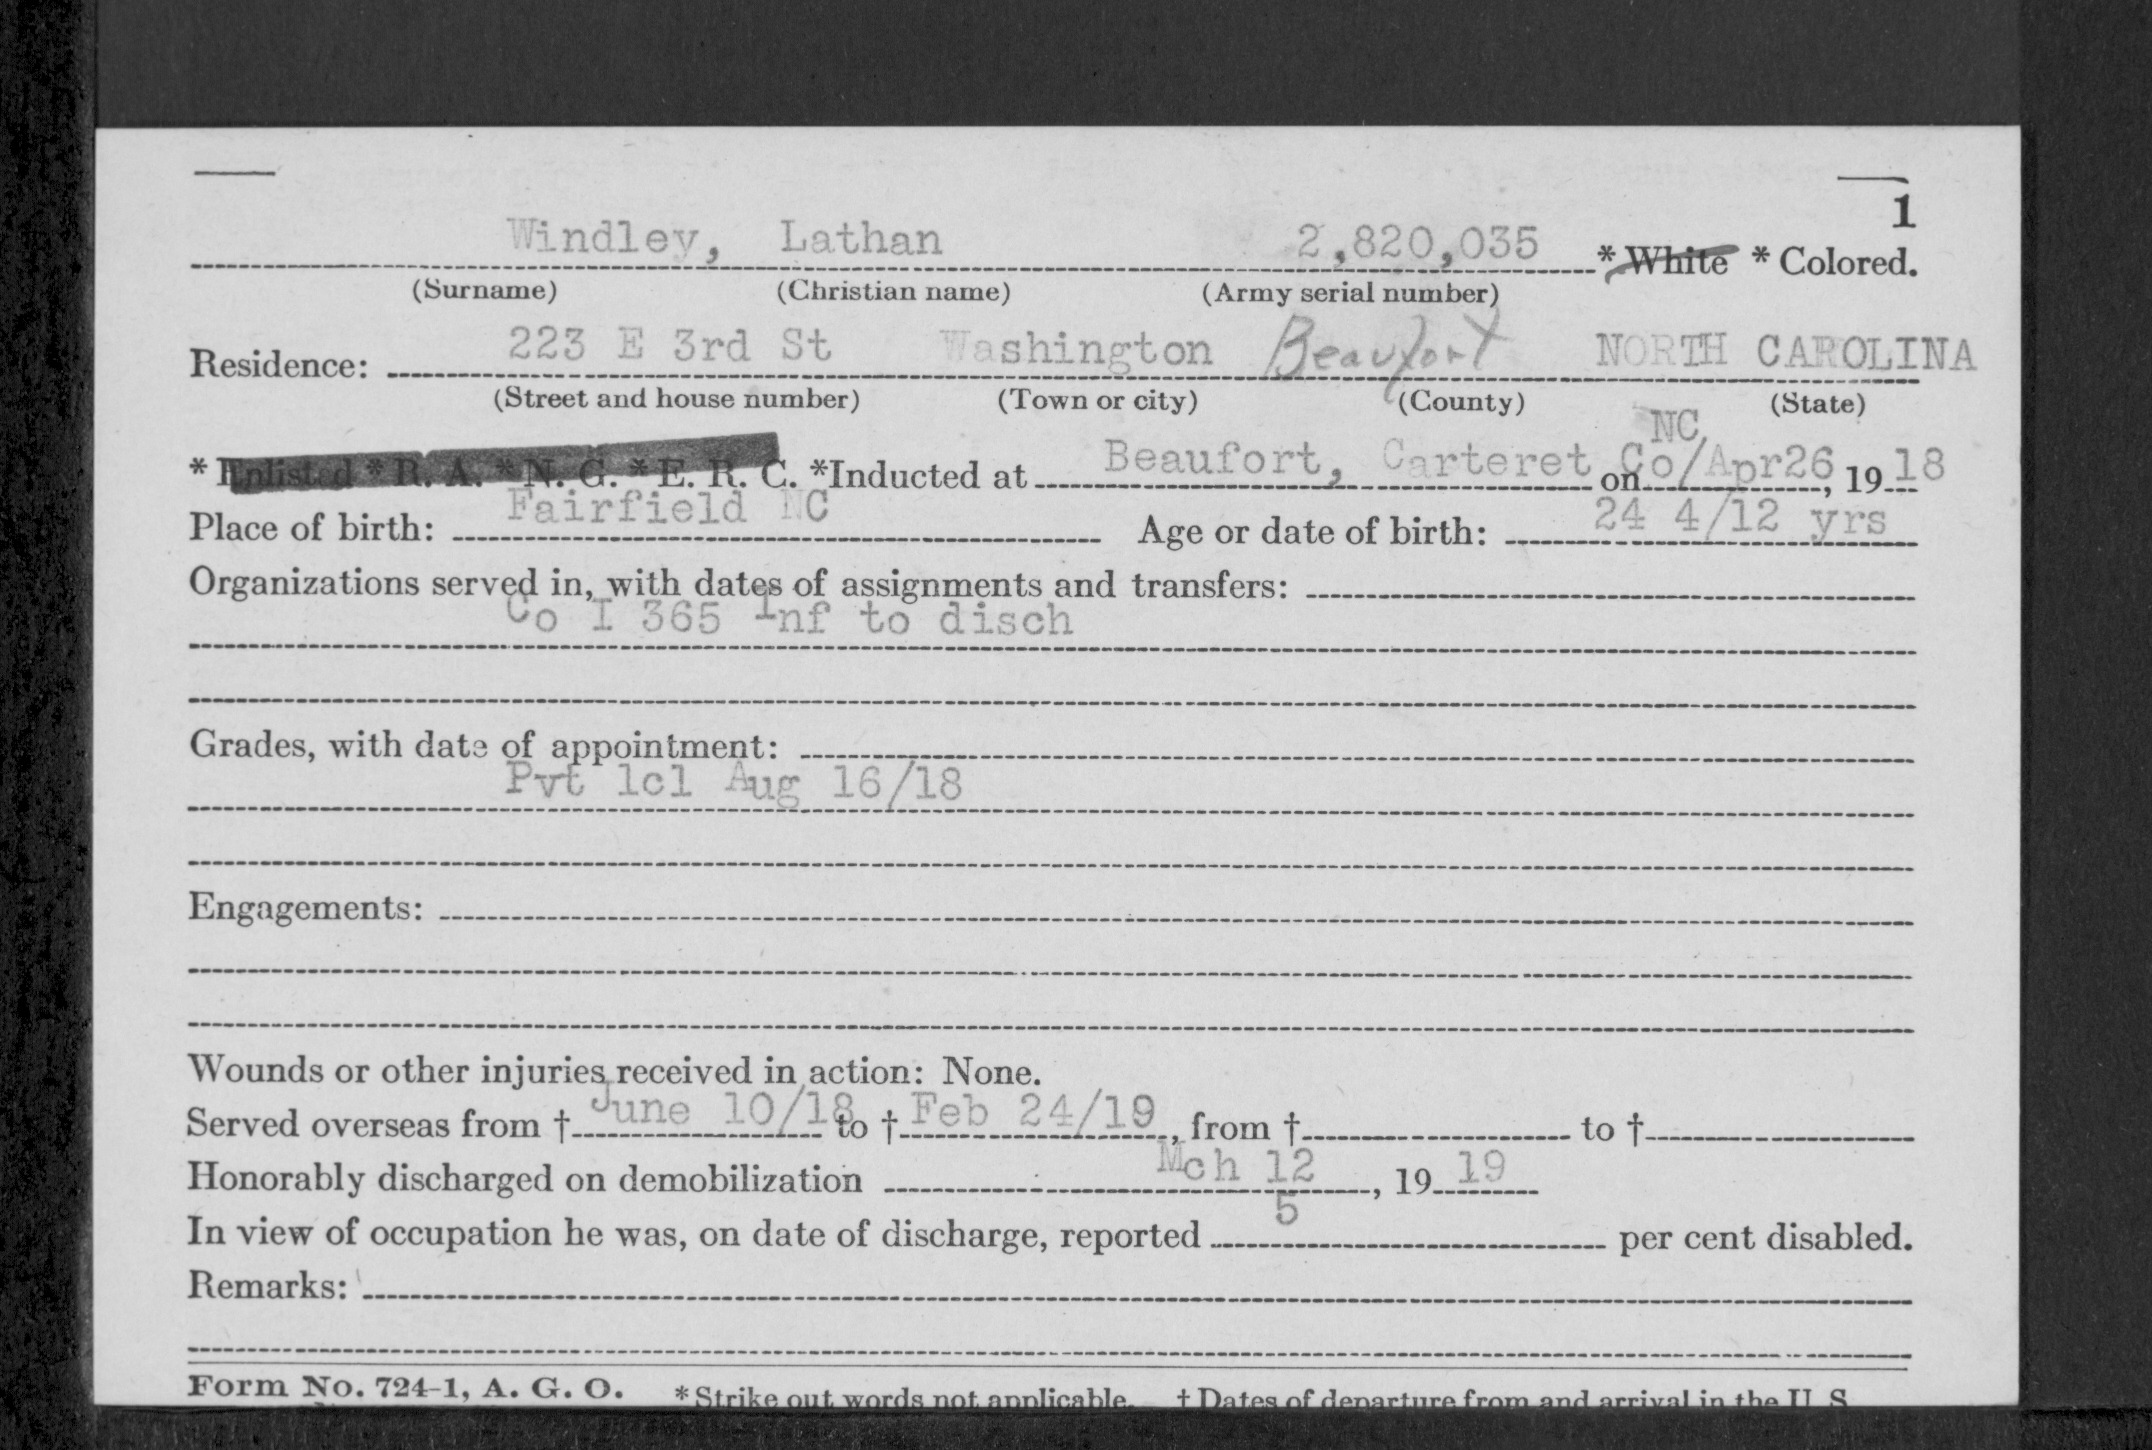 1
Windley, Lathan 2,820,035 * White * Colored.
(Surname) (Christian name) (Army serial number)
Residence: 223 E 3rd St Washington Beaufort NORTH CAROLINA
(Street and house number) (Town or city) (County) (State)
NC
* Enlisted * R. A. * N. G. * E. R. C. *Inducted at Beaufort, Carteret on Co/Apr26, 19 18
Place of birth: Fairfield NC Age or date of birth: 24 4/12 yrs
Organizations served in, with dates of assignments and transfers:
Co I 365 Inf to disch
Grades, with date of appointment:
Pvt 1cl Aug 16/18
Engagements:
Wounds or other injuries received in action: None.
Served overseas from † June 10/18 to † Feb 24/19, from † to †
Honorably discharged on demobilization Mch 12, 19 19
In view of occupation he was, on date of discharge, reported 5 per cent disabled.
Remarks:
Form No. 724-1, A. G. O. * Strike out words not applicable. † Dates of departure from and arrival in the U S